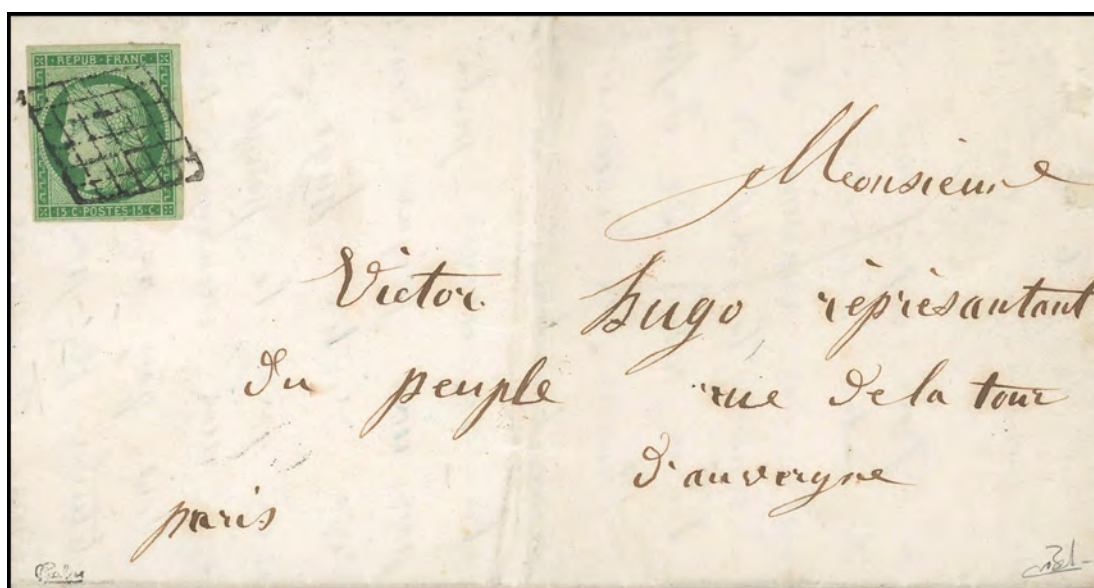 REPUB·FRANC·
15 C·POSTES·15 C
Monsieur
Victor hugo réprésantant
du peuple rue de la tour
d'auvergne
paris